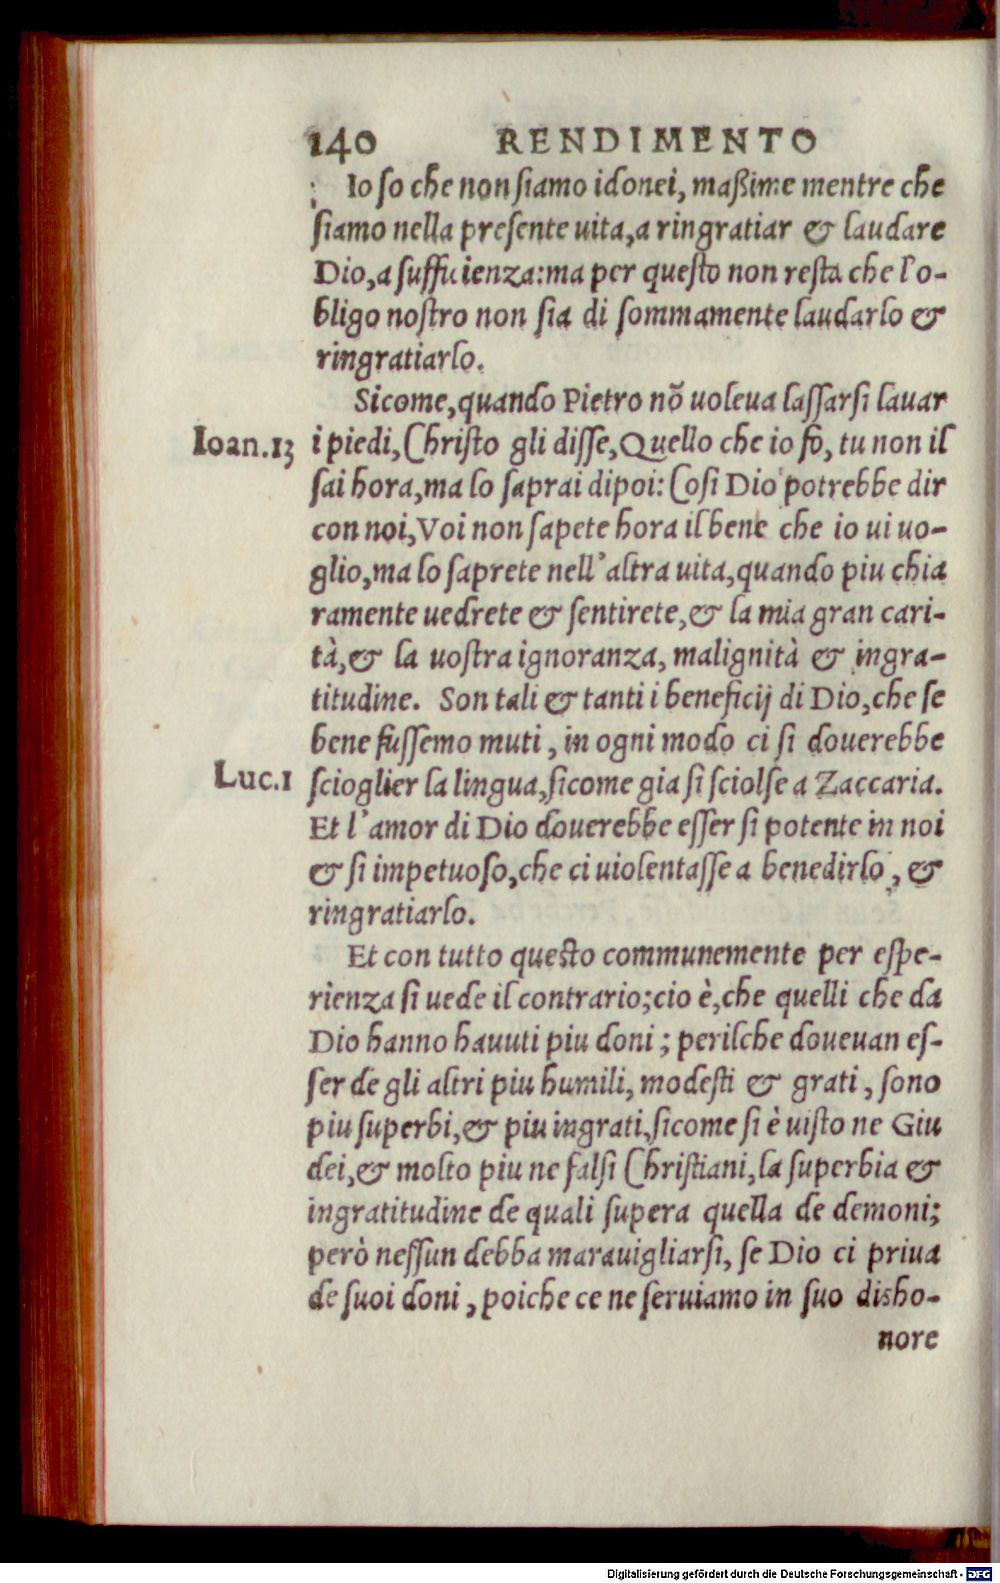 140 RENDIMENTO
Io so che non siamo idonei, maßime mentre che
siamo nella presente uita, a ringratiar & laudare
Dio, a sufficienza: ma per questo non resta che l'o-
bligo nostro non sia di sommamente laudarlo &
ringratiarlo.
Sicome, quando Pietro nõ uoleua lassarsi lauar
Ioan.13 i piedi, Christo gli disse, Quello che io fo, tu non il
sai hora, ma lo saprai dipoi: Cosi Dio potrebbe dir
con noi, Voi non sapete hora il bene che io ui uo-
glio, ma lo saprete nell'altra uita, quando piu chia
ramente uedrete & sentirete, & la mia gran cari-
tà, & la uostra ignoranza, malignità & ingra-
titudine. Son tali & tanti i beneficij di Dio, che se
bene fussemo muti, in ogni modo ci si douerebbe
Luc.1 scioglier la lingua, sicome gia si sciolse a Zaccaria.
Et l'amor di Dio douerebbe esser si potente in noi
& si impetuoso, che ci uiolentasse a benedirlo, &
ringratiarlo.
Et con tutto questo communemente per espe-
rienza si uede il contrario; cio è, che quelli che da
Dio hanno hauuti piu doni; perilche doueuan es-
ser de gli altri piu humili, modesti & grati, sono
piu superbi, & piu ingrati, sicome si è uisto ne Giu
dei, & molto piu ne falsi Christiani, la superbia &
ingratitudine de quali supera quella de demoni;
però nessun debba marauigliarsi, se Dio ci priua
de suoi doni, poiche ce ne seruiamo in suo disho-
nore
Digitalisierung gefördert durch die Deutsche Forschungsgemeinschaft - DFG